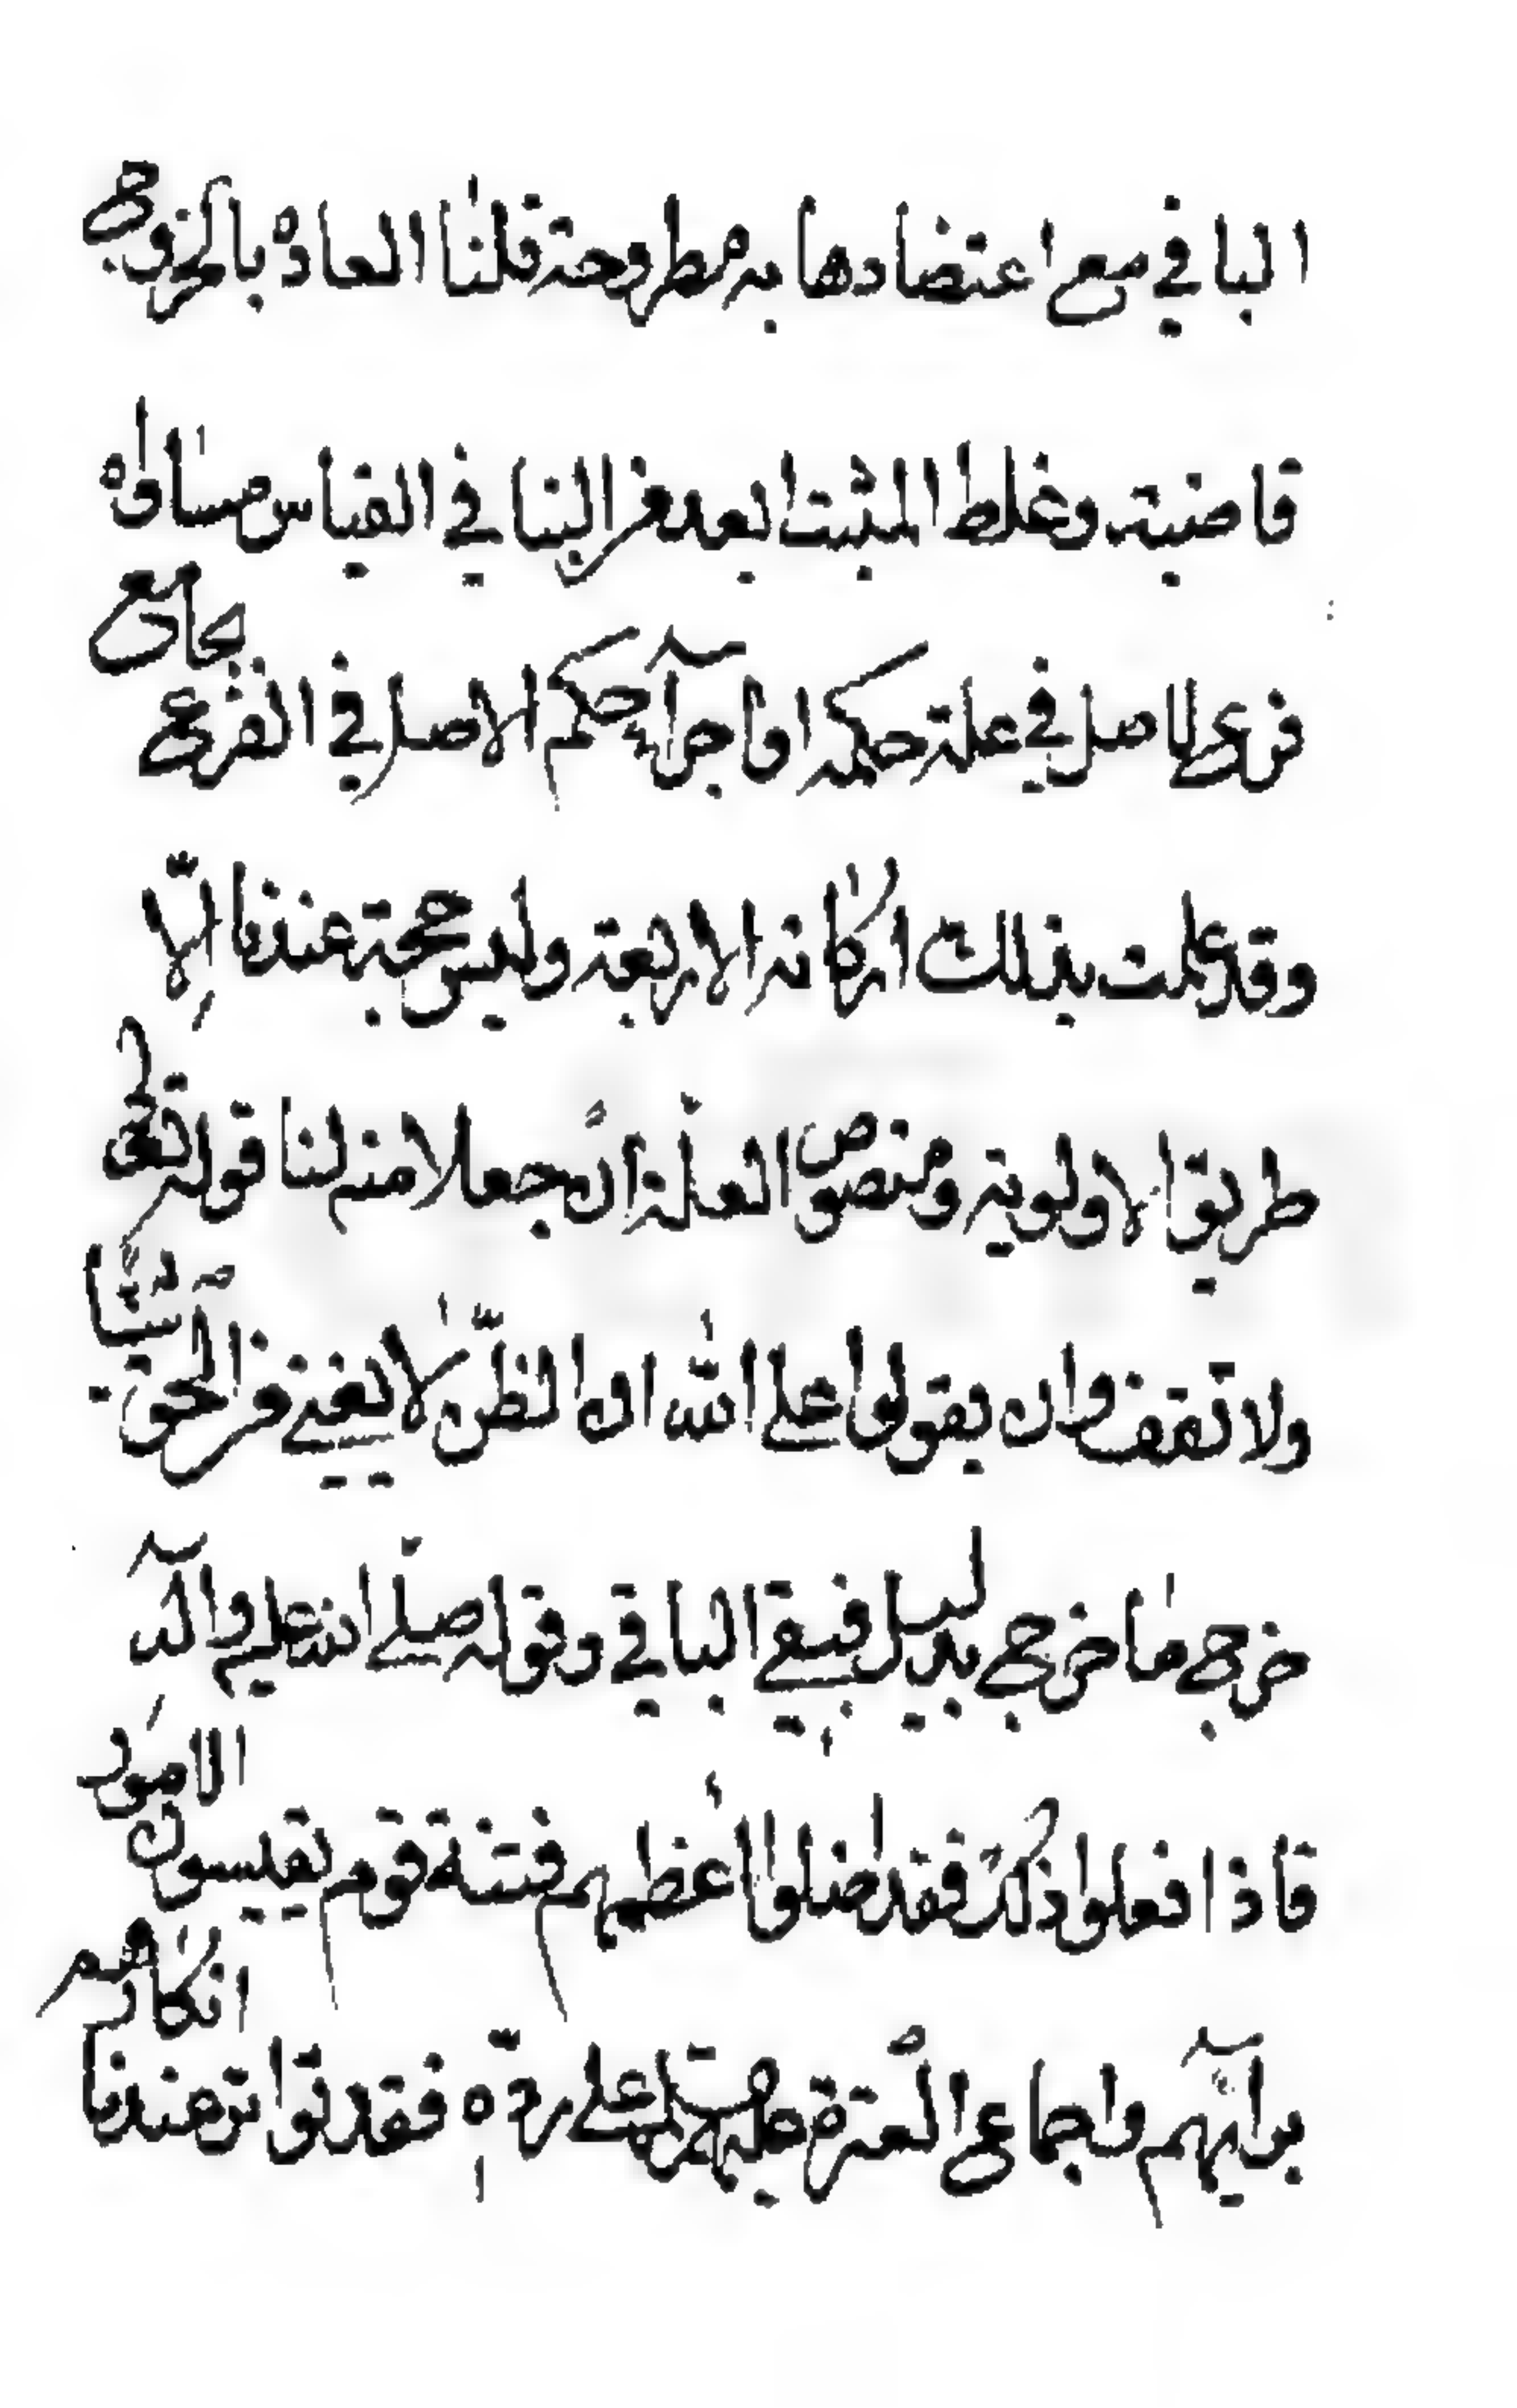 الباقي مع اعتضادها به مطروحة قلنا العادة بالخروج
قاضية وغلط المثبت بعد من البنا في القياس مساواة
فرع لاصل في علة حكمه او اجرآء حكم الاصل في الفرع بجامع
وقد علمت بذلك اركانه الاربعة وليس حجة عندنا الّا
طريق الاولوية ومنصوص العلة ان جعلا منه لنا قوله تعالى
ولا تقف وان يقولوا على الله ان الظنّ لا يغني من الحق شيئا
خرج ما خرج بدليل فبقي الباقي وقوله صلى الله عليه وآله
فاذا فعلوا ذلك فقد ضلوا اعظمهم فتنة قوم يقيسون الامور
برايهم واجماع العترة عليهم على ردّه فقد تواتر عندنا انكارهم